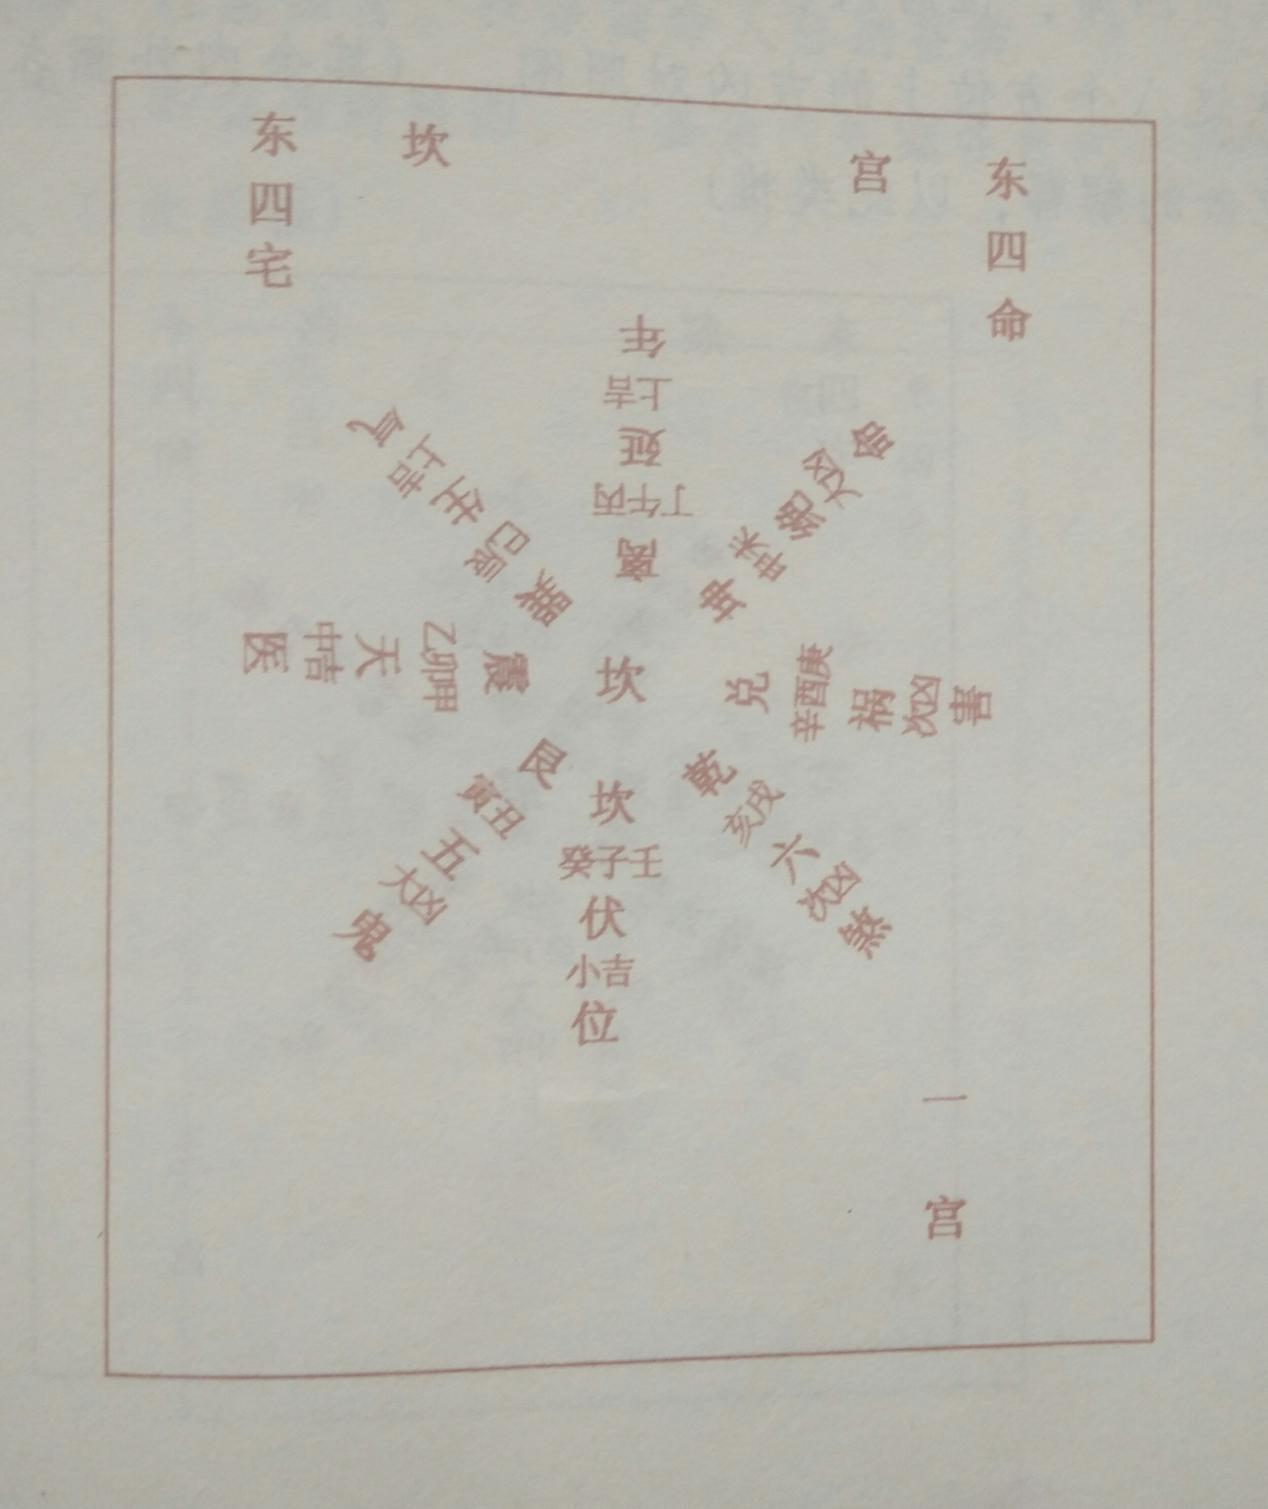 东四宅
坎
宫
东四命
年
上吉
延
丁午丙
离
气
上吉
生
巳辰
巽
命
大凶
绝
未
申
坤
医
中吉
天
乙卯甲
震
坎
兑
辛酉庚
祸
次凶
害
艮
寅丑
五
大凶
鬼
坎
癸子壬
伏
小吉
位
乾
亥戌
六
次凶
煞
一
宫